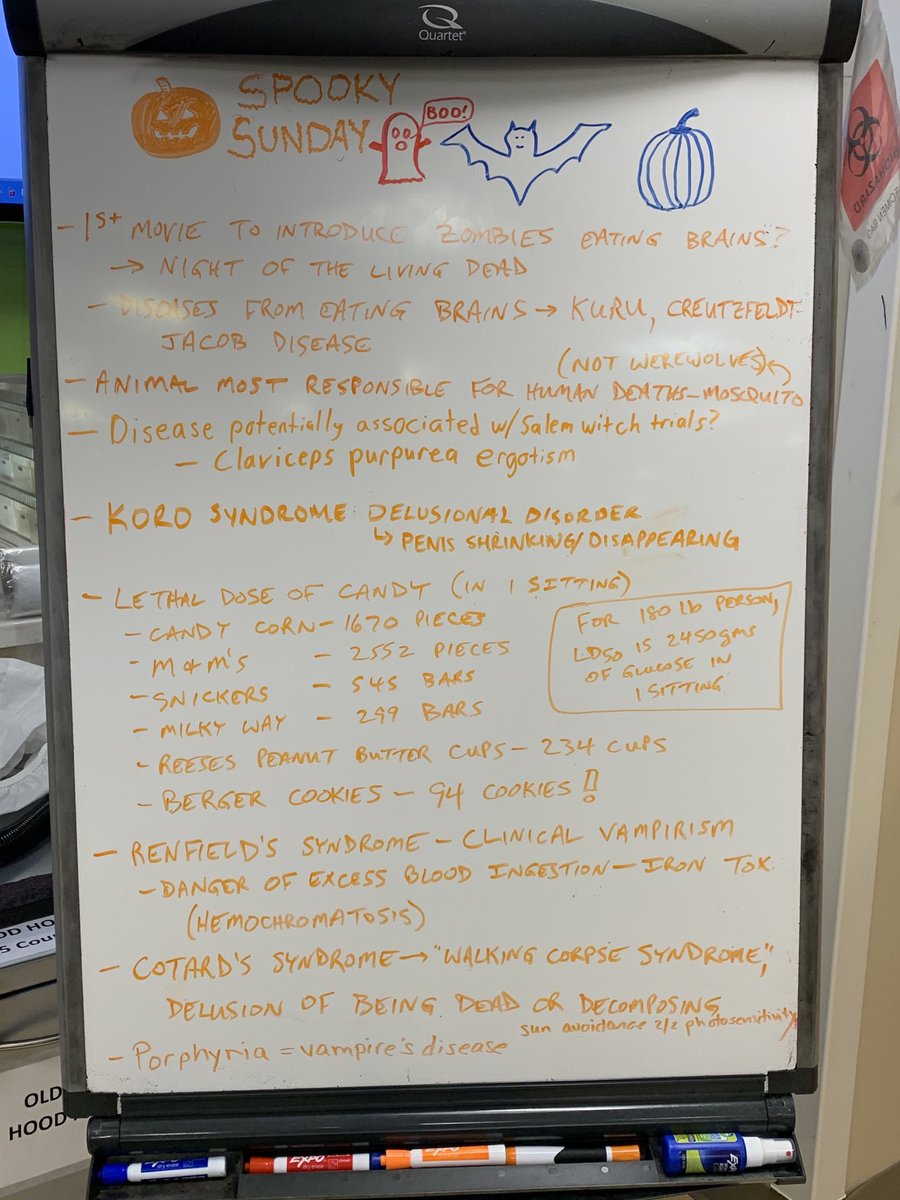 Quartet®
SPOOKY
SUNDAY
BOO!
BIOHAZARD
- 1st MOVIE TO INTRODUCE ZOMBIES EATING BRAINS?
→ NIGHT OF THE LIVING DEAD
- DISEASES FROM EATING BRAINS → KURU, CREUTZFELDT-
JACOB DISEASE
(NOT WEREWOLVES)
- ANIMAL MOST RESPONSIBLE FOR HUMAN DEATHS - MOSQUITO
- Disease potentially associated w/ Salem witch trials?
- Claviceps purpurea ergotism
- KORO SYNDROME: DELUSIONAL DISORDER
↳ PENIS SHRINKING/DISAPPEARING
- LETHAL DOSE OF CANDY (IN 1 SITTING)
- CANDY CORN - 1670 PIECES
- M & M'S - 2552 PIECES
- SNICKERS - 545 BARS
- MILKY WAY - 299 BARS
- REESES PEANUT BUTTER CUPS - 234 CUPS
- BERGER COOKIES - 94 COOKIES!!
FOR 180 lb PERSON,
LD50 IS 2450 gms
OF GLUCOSE IN
1 SITTING
- RENFIELD'S SYNDROME - CLINICAL VAMPIRISM
- DANGER OF EXCESS BLOOD INGESTION - IRON TOX.
(HEMOCHROMATOSIS)
- COTARD'S SYNDROME → "WALKING CORPSE SYNDROME",
DELUSION OF BEING DEAD OR DECOMPOSING
sun avoidance 2/2 photosensitivity
- Porphyria = vampire's disease
OLD
HOOD
EXPO
EXPO
EXPO
EXPO